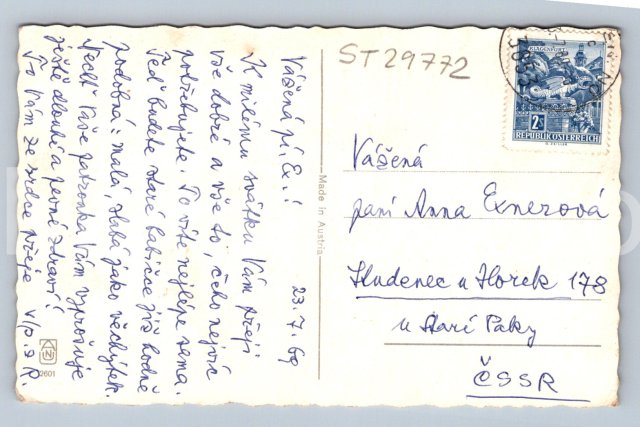 23.7.69
Vážená pí, Ex.!
K milému svátku Vám přeji
vše dobré a vše to, čeho nejvíc
potřebujete. To víte nejlépe sama.
Teď budete staré babičce již hodně
podobná: malá, slabá jako věchýtek.
Nechť Vaše patronka Vám vyprošuje
ještě dlouhé a pevné zdraví!
To Vám ze srdce přeje
ST29772
Made in Austria
2601
KLAGENFURT
2S
REPUBLIK ÖSTERREICH
Vážená
paní Anna Exnerová
Studenec u Horek 178
u Staré Paky
ČSSR